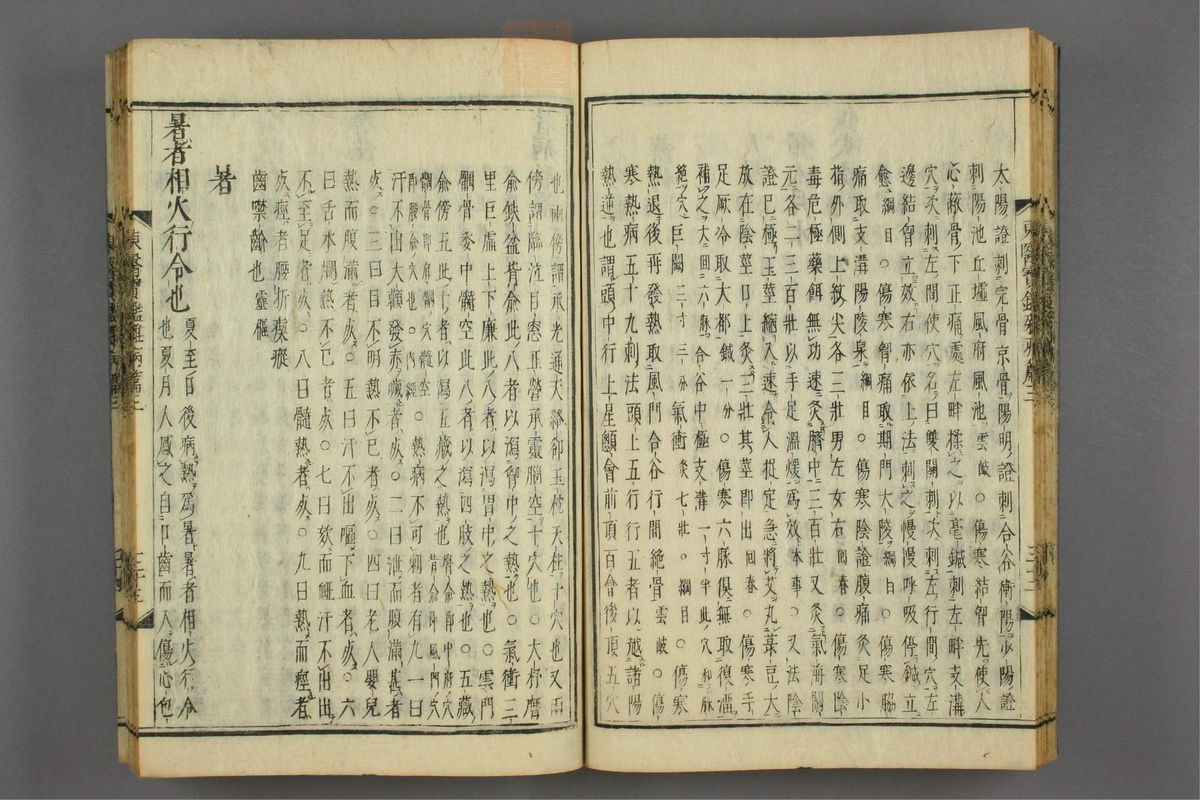 太陽證刺完骨京骨陽明證刺合谷衝陽少陽證
刺陽池丘墟風府風池雲岐○傷寒結胷先使人
心蔽骨下正痛處左畔揉之以毫鍼刺左畔支溝
穴次刺左間使穴名曰雙關刺次刺左行間穴左
邊結胷立效右亦依上法刺之慢慢呼吸停鍼立
愈綱目○傷寒胷痛取期門大陵綱目○傷寒脇
痛取支溝陽陵泉綱目○傷寒陰證腹痛灸足小
指外側上紋尖各三壯男左女右回春○傷寒陰
毒危極藥餌無功速灸臍中三百壯又灸氣海關
元各二三百壯以手足溫煖爲效本事○又法陰
證已極玉莖縮入速令人捉定急將艾丸蒃豆大
放在陰莖口上灸三壯其莖即出回春○傷寒手
足厥冷大都鍼一分○傷寒六脉俱無取復溜
補之大回六脉合谷中極支溝一寸半此穴和脉
絶穴巨闕二寸三分氣衝灸七壯綱目○傷寒
熱退後再發熱取風門合谷行間絶骨雲岐○傷
寒熱病五十九刺法頭上五行行五者以越諸陽
熱逆也謂頭中行上星顖會前頂百會後頂五穴
也兩傍謂承光通天絡却玉枕天柱十穴也又兩
傍謂臨泣目窓正營承靈腦空十穴也○大杼膺
兪缺盆背兪此八者以瀉胷中之熱也○氣衝三
里巨虛上下廉此八者以瀉胃中之熱也○雲門
髃骨委中髓空此八者以瀉四肢之熱也○五藏
兪傍五此十者以瀉五藏之熱也膺兪即中府穴背兪即風門穴
髃骨即肩髃穴髓空即腰兪穴也內經○熱病不可刺者有九一曰
汗不出大顴發赤噦者死○二曰泄而腹滿甚者
死○三曰目不明熱不已者死○四曰老人嬰兒
熱而腹滿者死○五曰汗不出嘔下血者死○六
曰舌本爛熱不已者死○七曰欬而衄汗不出出
不至足者死○八曰髓熱者死○九曰熱而痙者
死痙者腰折瘈瘲
齒噤齘也靈樞
暑
暑者相火行令也夏至日後病熱爲暑暑者相火行令
也夏月人感之自口齒而入傷心包
東醫寶鑑雜病篇三